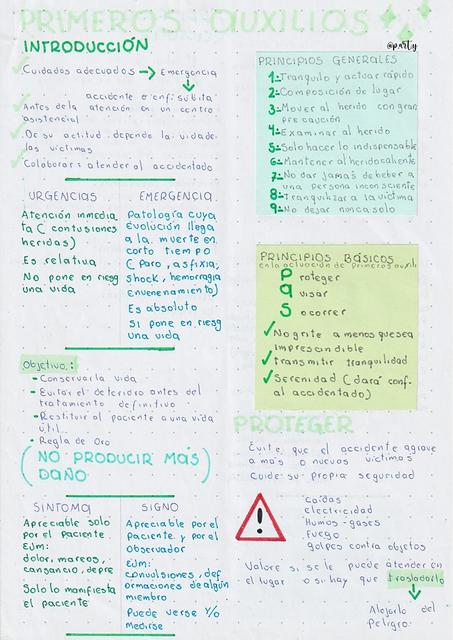 PRIMEROS AUXILIOS
INTRODUCCIÓN
Cuidados adecuados → Emergencia
accidente o enf. súbita
Antes de la atención en un centro
asistencial
De su actitud depende la vida de
las víctimas
Colaborar: atender al accidentado
URGENCIAS
Atención inmedia
ta (contusiones
heridas)
Es relativa
No pone en riesg
una vida
EMERGENCIA
Patología cuya
evolución llega
a la muerte en
corto tiempo
(Paro, asfixia,
shock, hemorragia
envenenamiento)
Es absoluto
Si pone en riesg
una vida
Objetivo:
- Conservar la vida
- Evitar el deterioro antes del
tratamiento definitivo
- Restituir al paciente a una vida
útil..
- Regla de Oro
(NO PRODUCIR MÁS
DAÑO)
SINTOMA
Apreciable solo
por el paciente.
EJM:
dolor, mareos,
cansancio, depre
Solo lo manifiesta
el paciente
SIGNO
Apreciable por el
paciente y por el
observador
EJM:
convulsiones, def
ormaciones de algún
miembro
Puede verse y/o
medirse
@party
PRINCIPIOS GENERALES
1:- Tranquilo y actuar rápido
2:- Composición de lugar
3:- Mover al herido con gran
precaución
4:- Examinar al herido
5:- Solo hacer lo indispensable
6:- Mantener al herido caliente
7:- No dar jamás de beber a
una persona inconsciente
8:- Tranquilizar a la víctima
9:- No dejar nonca solo
PRINCIPIOS BÁSICOS
en la actuación de primeros auxili
Proteger
avisar
Socorrer
No grite a menos que sea
imprescindible
transmitir tranquilidad
Serenidad (dará conf.
al accidentado)
PROTEGER
Evite que el accidente agrave
a más o nuevas víctimas
Cuide su propia seguridad
Caídas
electricidad
Humos - gases
Fuego
golpes contra objetos
Valore si se le puede atender en
el lugar o si hay que trasladarlo
Alejarlo del
Peligro.